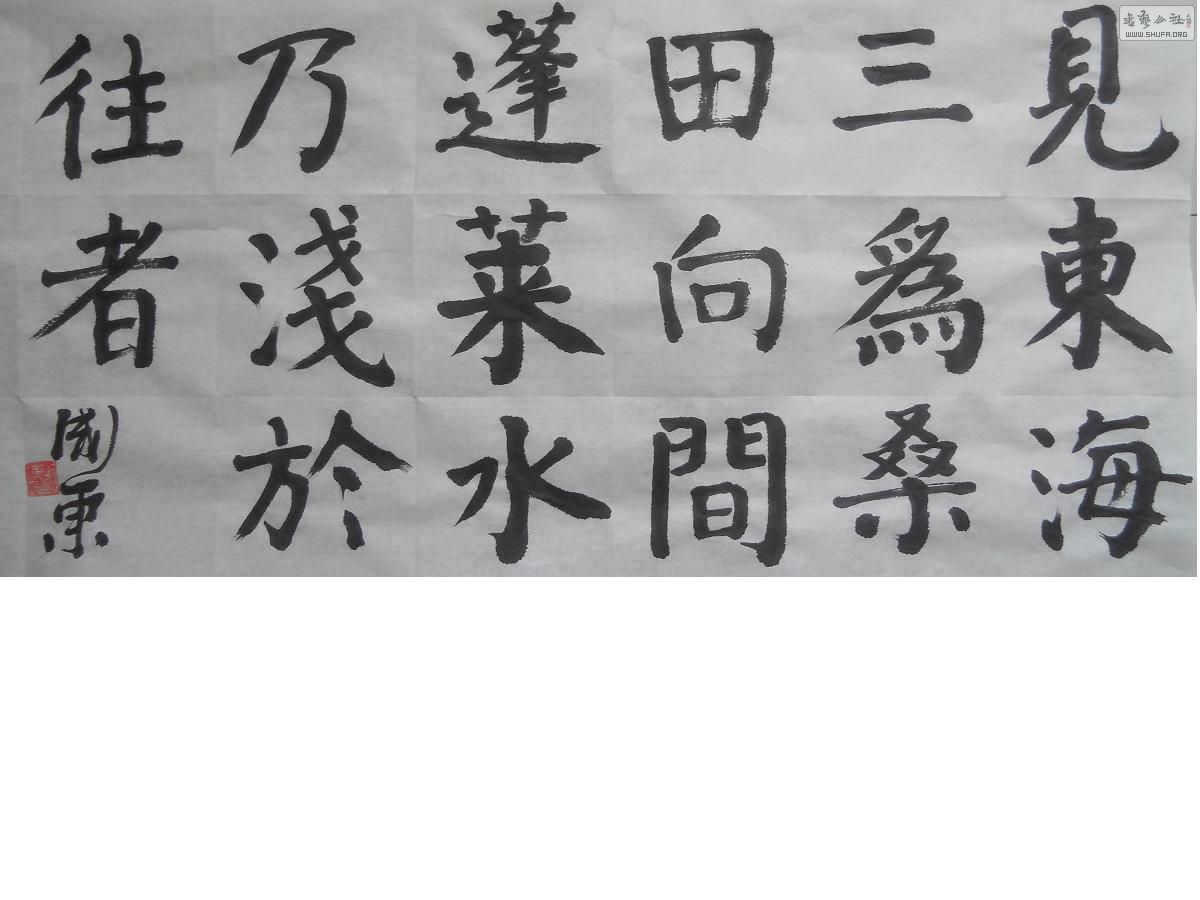 見東海
三爲桑
田向間
蓬莱水
乃淺於
往者
國東
书艺公社
WWW.SHUFA.ORG